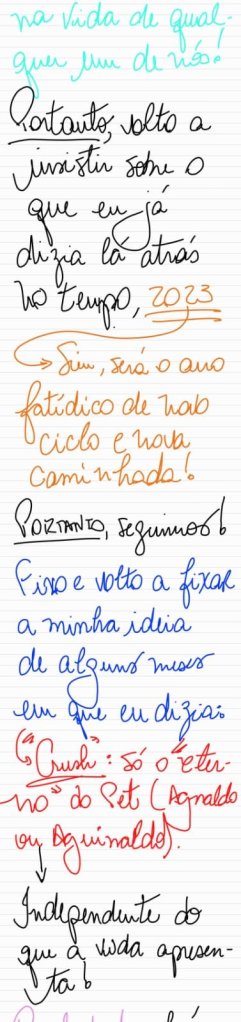 na vida de qual-
quer um de nós!
Portanto, volto a
insistir sobre o
que eu já
dizia lá atrás
no tempo, 2023
→ Sim, será o ano
fatídico de novo
ciclo e nova
caminhada!
PORTANTO, seguimos!
Fixo e volto a fixar
a minha ideia
de alguns meses
em que eu dizia:
"Crush": só o "eter-
no" do Pet (Agnaldo
ou Aguinaldo).
Independente do
que a vida apresen-
ta!